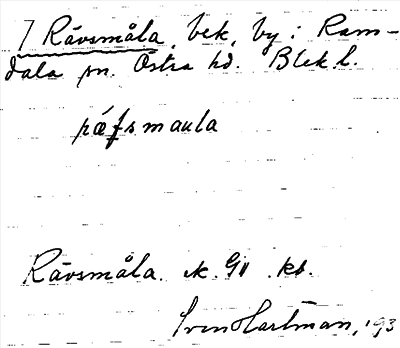 7 Rävsmåla, bek, by i Ram-
dala sn. Östra hd. Blek l.
ræfsmaula
Rävsmåla. ek. GV .kb.
Sven Hartman, '93